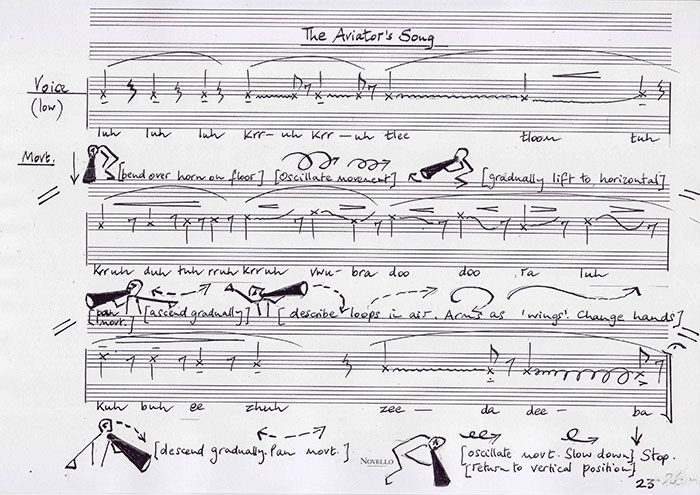 The Aviator's Song
Voice
(low)
luh luh luh Krr-uh krr-uh tlee tloom tuh
Movt.
[bend over horn on floor] [Oscillate movement] [gradually lift to horizontal]
Krruh duh tuh rruh krruh vwu-bra doo doo ra luh
[pan movt.] [ascend gradually] [describe loops in air. Arms as 'wings'. Change hands]
Kuh buh ee zhuh zee — da dee — ba
[descend gradually. Pan movt.]
NOVELLO
[oscillate movt. Slow down] Stop.
[return to vertical position]
23